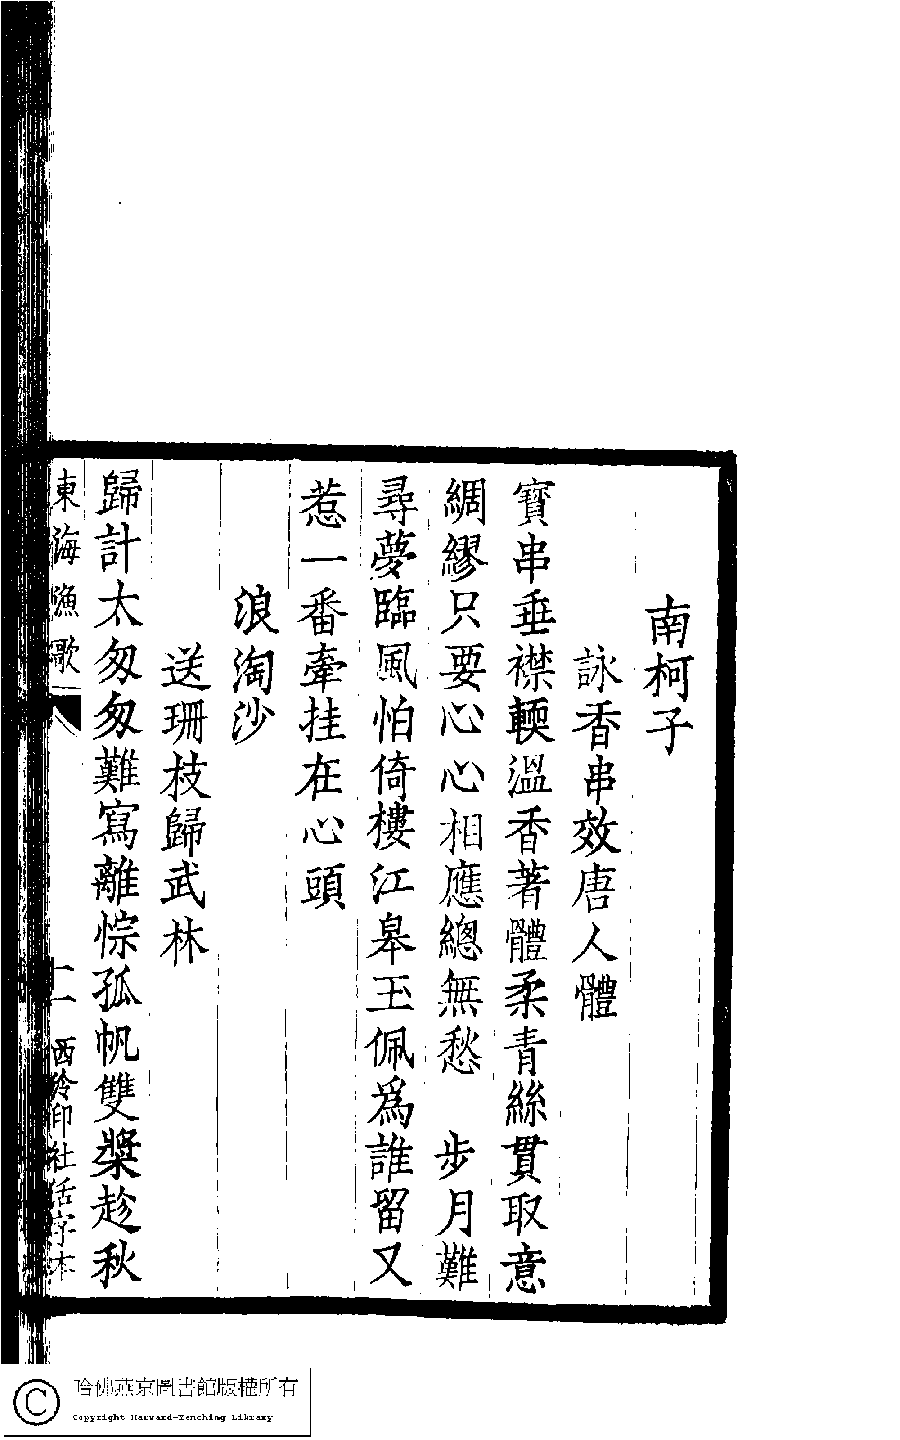 南柯子
詠香串效唐人體
寶串垂襟輭溫香著體柔青絲貫取意
綢繆只要心心相應總無愁　步月難
尋夢臨風怕倚樓江皋玉佩為誰留又
惹一番牽挂在心頭
浪淘沙
送珊枝歸武林
歸計太匆匆難寫離悰孤帆雙槳趁秋
東海漁歌
二　西泠印社活字本
哈佛燕京圖書館版權所有
Copyright Harvard-Yenching Library